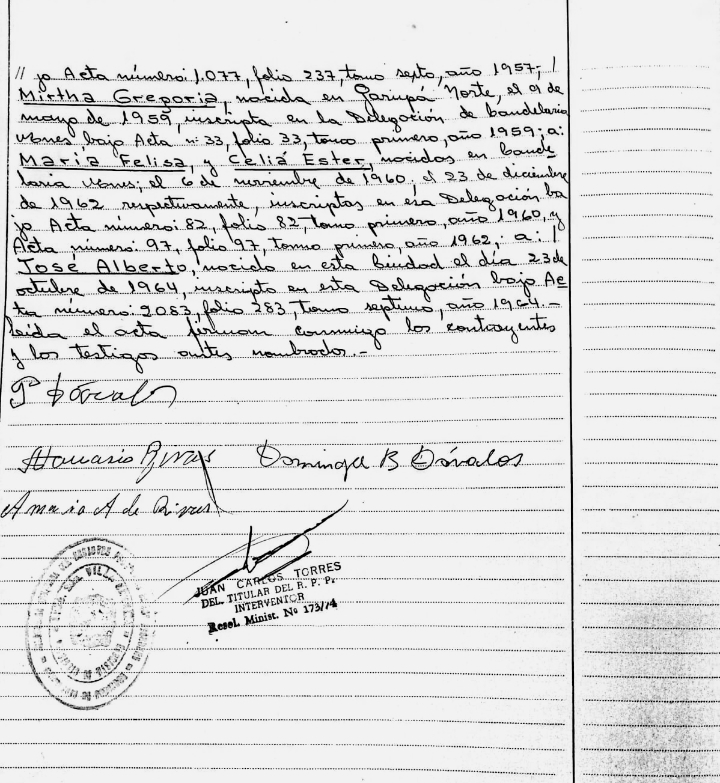 // jo Acta número: 1.077, folio 237, tomo septo, año 1957; /
Mirtha Gregoria, nacida en Garupá Norte, el 9 de
mayo de 1959, inscripta en la Delegación de bandelaria
bajo Acta nº 33, folio 33, tomo primero, año 1959; a:
María Felisa, y Celia Ester, nacidos en bande
laria; el 6 de noviembre de 1960; el 23 de diciembre
de 1962 respectivamente, inscriptas en esa Delegación ba
jo Acta número: 82, folio 82, tomo primero, año 1960, y
Acta número: 97, folio 97, tomo primero, año 1962,; a: /
José Alberto, nacido en esta ciudad el día 23 de
octubre de 1964, inscripto en esta Delegación bajo Ac
ta número: 2083, folio 283, tomo septimo, año 1964.-
Leida el acta firman conmigo los contrayentes
y los testigos antes nombrados.-
Dominga B Dávalos
A de Rivas
JUAN CARLOS TORRES
DEL. TITULAR DEL R. P. P.
INTERVENTOR
Resol. Minist. Nº 173/74